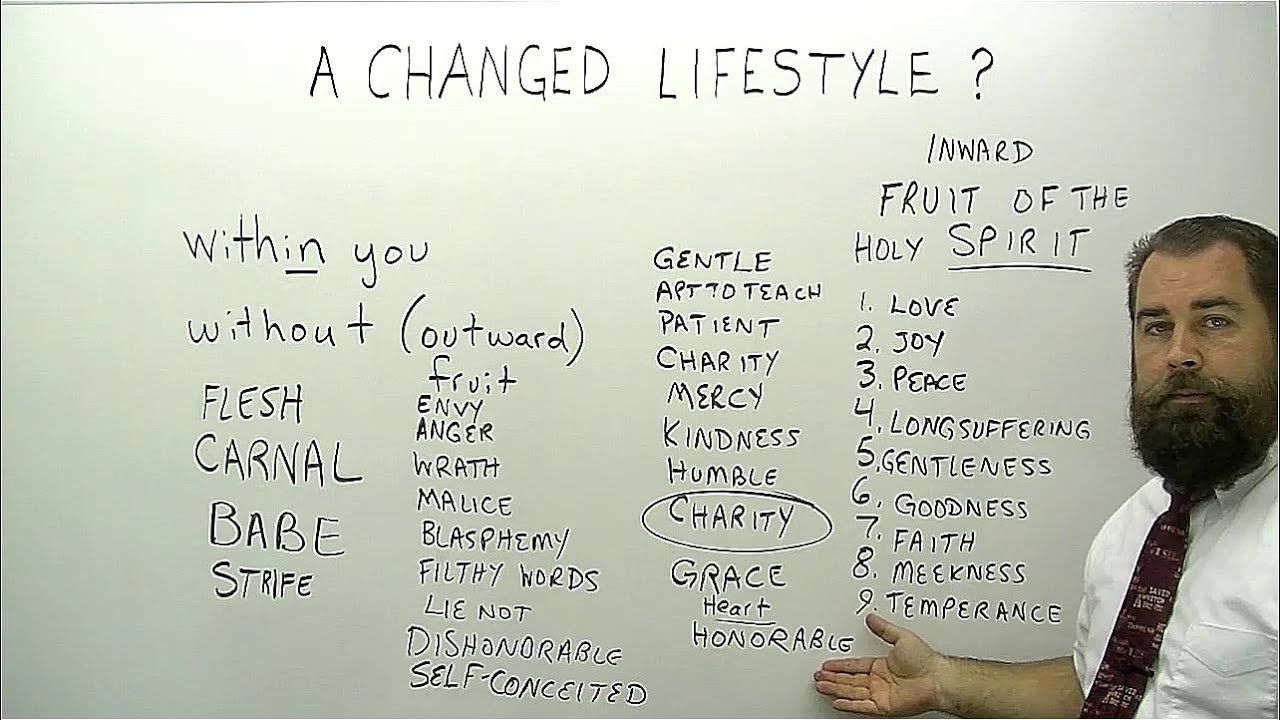 A CHANGED LIFESTYLE ?
within you
without (outward)
fruit
FLESH
CARNAL
BABE
STRIFE
ENVY
ANGER
WRATH
MALICE
BLASPHEMY
FILTHY WORDS
LIE NOT
DISHONORABLE
SELF-CONCEITED
GENTLE
APT TO TEACH
PATIENT
CHARITY
MERCY
KINDNESS
HUMBLE
CHARITY
GRACE
Heart
HONORABLE
INWARD
FRUIT OF THE
HOLY SPIRIT
1. LOVE
2. JOY
3. PEACE
4. LONGSUFFERING
5. GENTLENESS
6. GOODNESS
7. FAITH
8. MEEKNESS
9. TEMPERANCE